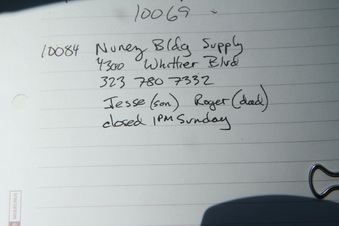 10069
10084 Nunez Bldg Supply
4300 Whittier Blvd
323 780 7332
Jesse (son) Roger (dad)
closed 1PM Sunday